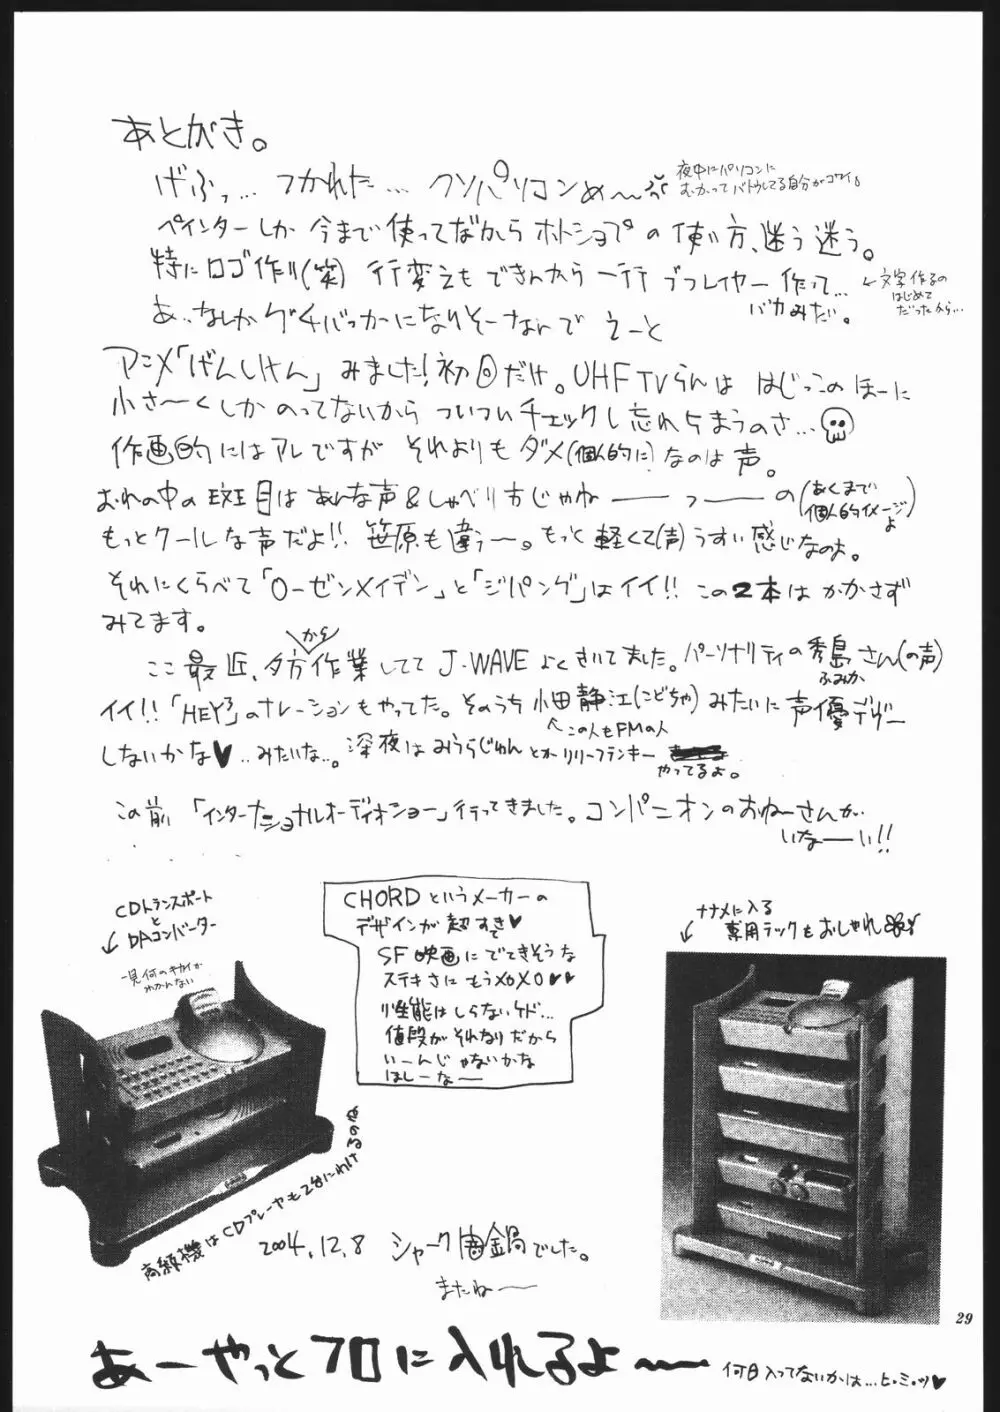 あとがき。
げふっ… つかれた… クソパソコンめ～
夜中にパソコンに
むかってバトウしてる自分がコワイ。
ペインターしか今まで使ってなかったからホトショプの使い方、迷う迷う。
特にロゴ作り(笑) 行変えもできんから一行ずつレイヤー作って…
バカみたい。
←文字作るの
はじめて
だったから…
あ、なんかグチばっかになりそーなんで えーと
アニメ「げんしけん」みました!初回だけ。UHF TVらんは はじっこのほーに
小さ～くしかのってないから ついついチェックし忘れちまうのさ…
作画的にはアレですが それよりもダメ(個人的に)なのは声。
おれの中の斑目はあんな声&しゃべり方じゃねーーっーーの(あくまで
個人的イメージ
よ)
もっとクールな声だよ!! 笹原も違う～。もっと軽くて(声)うすい感じなのよ。
それにくらべて「ローゼンメイデン」と「ジパング」はイイ!! この2本はかかさず
みてます。
ここ最近、夕方から作業してて J-WAVE よくきいてました。パーソナリティの秀島さん(の声)
ふみか
イイ!!「HEY³」のナレーションもやってた。そのうち小田静江(こどちゃ)みたいに声優デヴュー
しないかな♥…みたいな…。深夜はみうらじゅんとかリリーフランキー
この人もFMの人
やってるよ。
この前「インターナショナルオーディオショー」行ってきました。コンパニオンのおねーさんが
いなーーい!!
CDトランスポート
と
DAコンバーター
一見何のキカイか
わかんない
CHORDというメーカーの
デザインが超すてき♥
SF映画にでてきそうな
ステキさにもうメロメロ♥♥
性能はしらないケド…
値段がそれなりだから
いーんじゃないかな
ほしーなー
ナナメに入る
専用ラックもおしゃれ
高級機はCDプレーヤも2台にわけるのさ
2004.12.8 シャーク 鍋でした。
またねー
29
あーやっとフロに入れるよ～
何日入ってないかは…ヒ・ミ・ツ♥